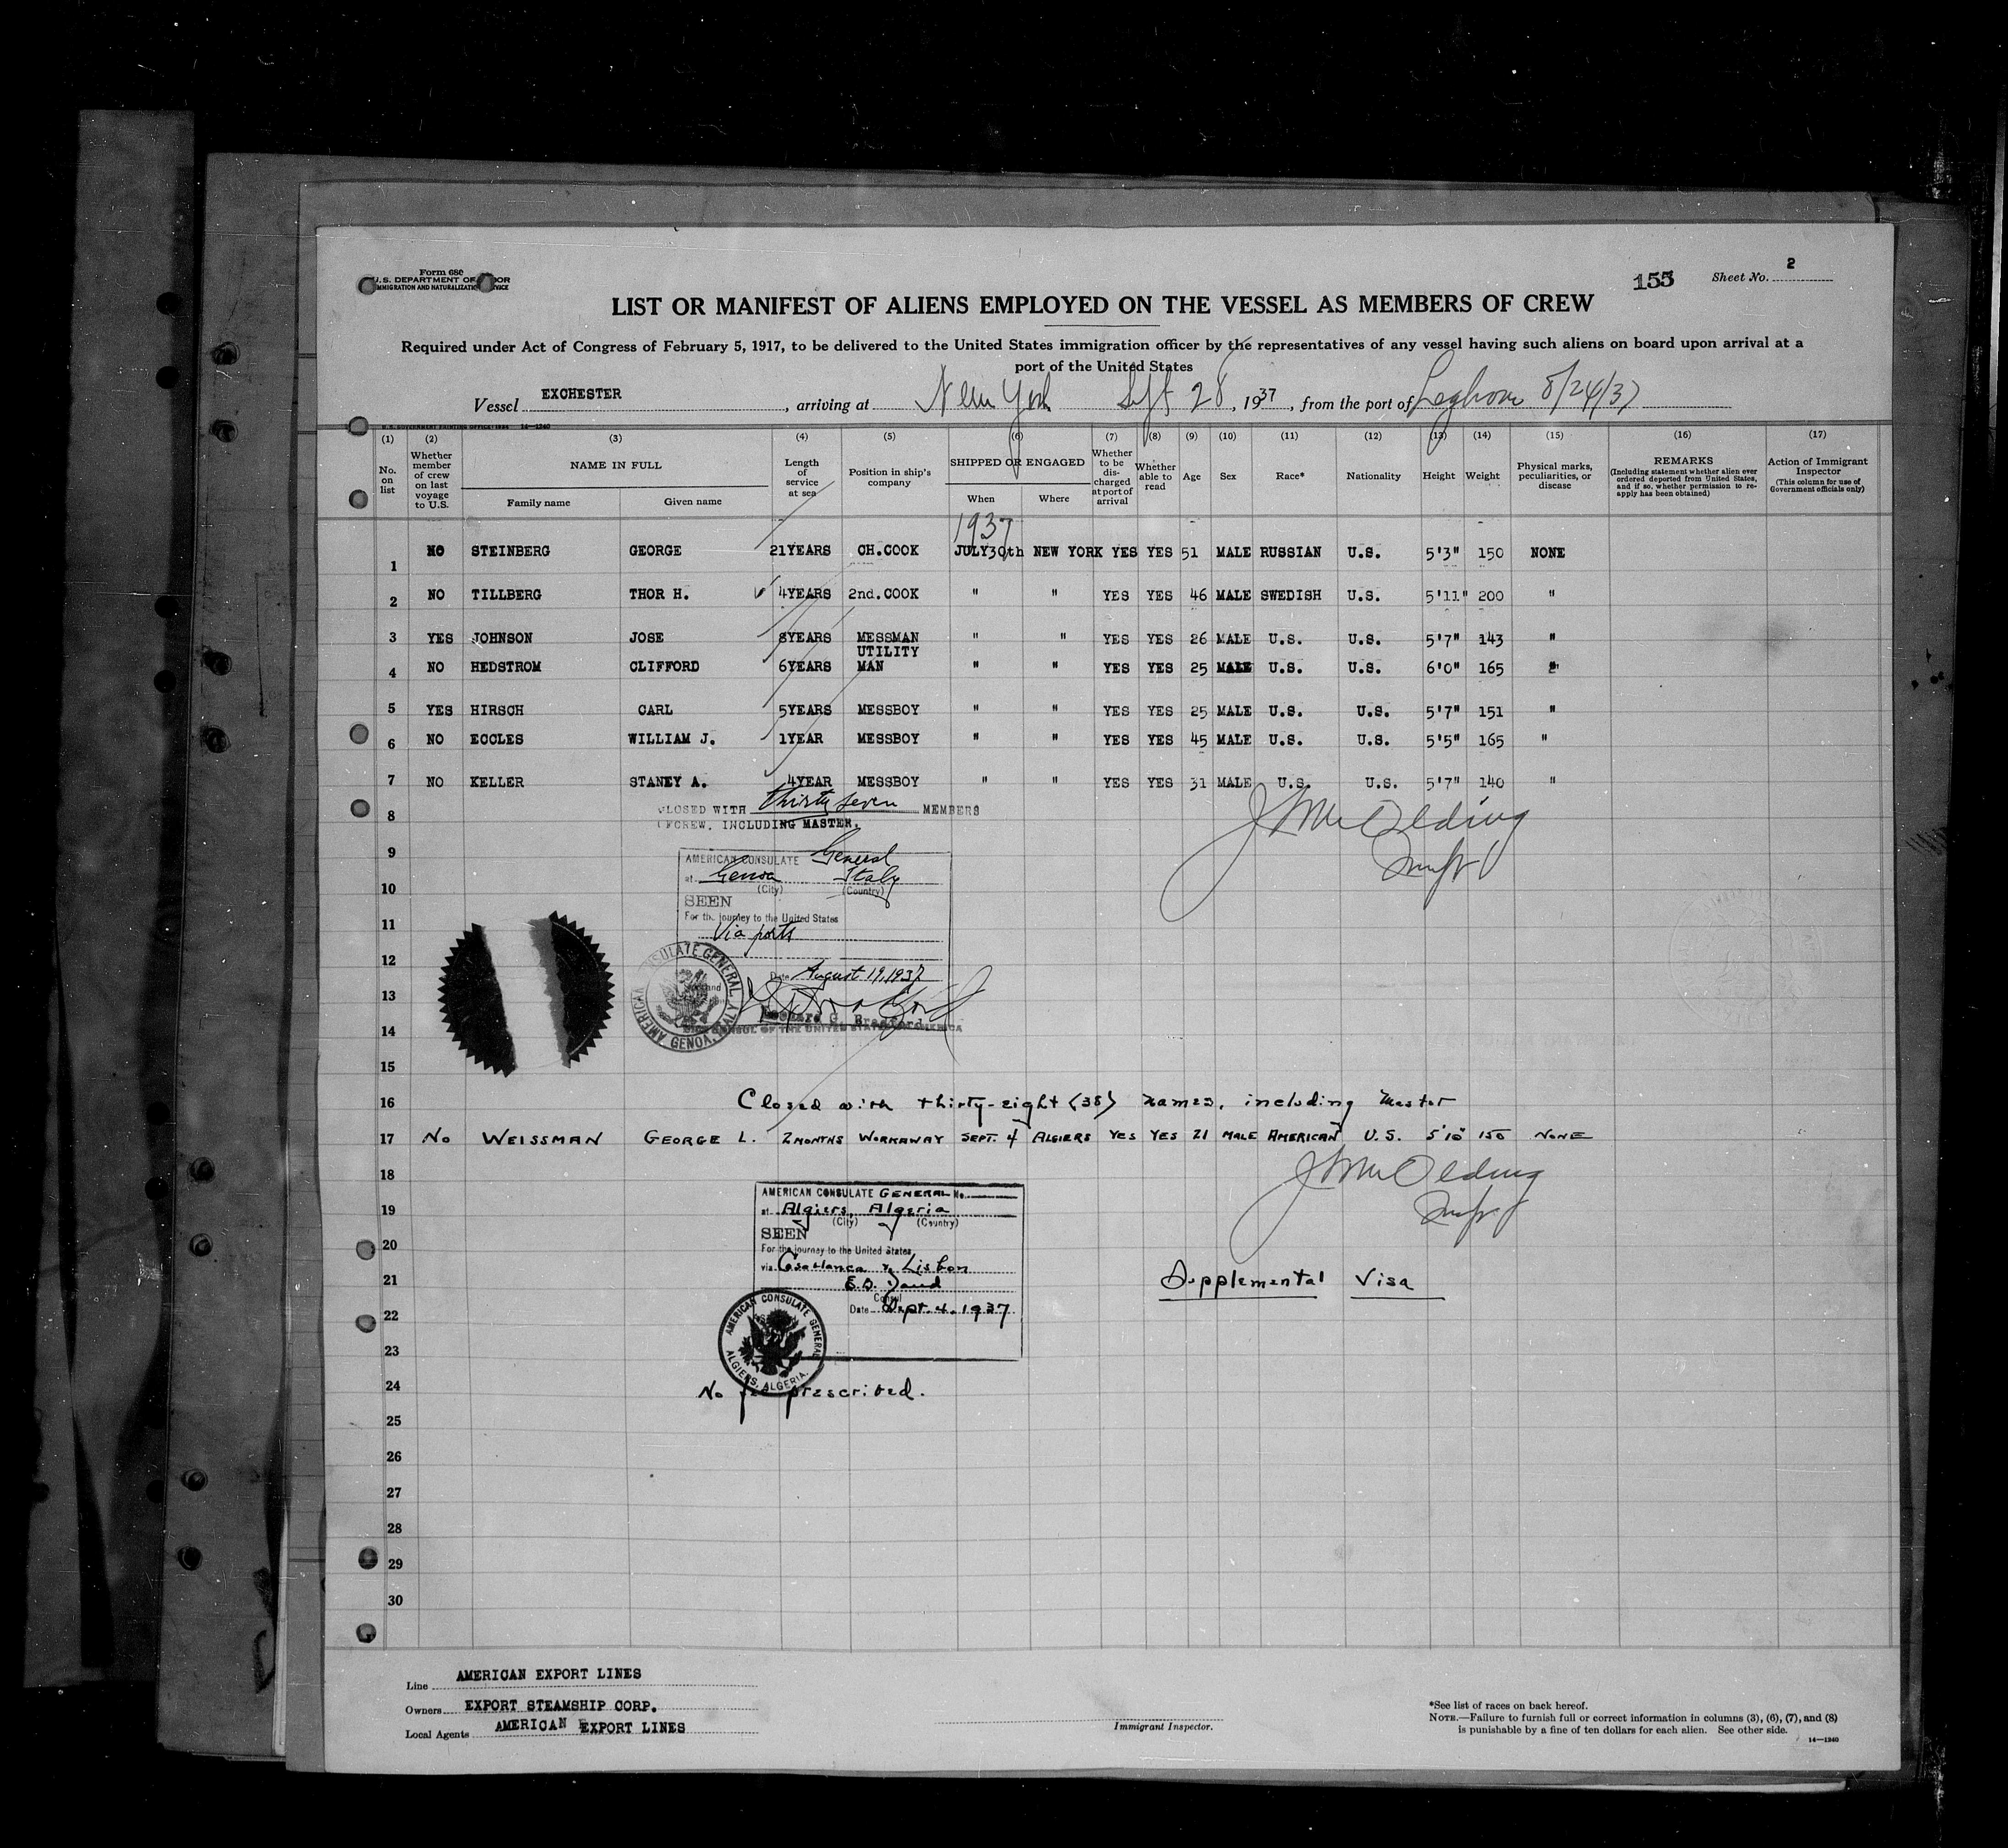 Form 680
U.S. DEPARTMENT OF LABOR
IMMIGRATION AND NATURALIZATION SERVICE
155
Sheet No. 2
LIST OR MANIFEST OF ALIENS EMPLOYED ON THE VESSEL AS MEMBERS OF CREW
Required under Act of Congress of February 5, 1917, to be delivered to the United States immigration officer by the representatives of any vessel having such aliens on board upon arrival at a
port of the United States
Vessel EXCHESTER, arriving at New York Sept 28, 1937, from the port of Leghorn 8/24/37
U.S. GOVERNMENT PRINTING OFFICE: 1934 14—1240
(1) (2) (3) (4) (5) (6) (7) (8) (9) (10) (11) (12) (13) (14) (15) (16) (17)
No. on list
Whether member of crew on last voyage to U.S.
NAME IN FULL
Family name
Given name
Length of service at sea
Position in ship's company
SHIPPED OR ENGAGED
When
Where
Whether to be discharged at port of arrival
Whether able to read
Age
Sex
Race*
Nationality
Height
Weight
Physical marks, peculiarities, or disease
REMARKS
(Including statement whether alien ever ordered deported from United States, and if so, whether permission to reapply has been obtained)
Action of Immigrant Inspector
(This column for use of Government officials only)
1937
1 NO STEINBERG GEORGE 21YEARS CH.COOK JULY30th NEW YORK YES YES 51 MALE RUSSIAN U.S. 5'3" 150 NONE
2 NO TILLBERG THOR H. 4YEARS 2nd.COOK " " YES YES 46 MALE SWEDISH U.S. 5'11" 200 "
3 YES JOHNSON JOSE 8YEARS MESSMAN " " YES YES 26 MALE U.S. U.S. 5'7" 143 "
4 NO HEDSTROM CLIFFORD 6YEARS UTILITY MAN " " YES YES 25 MALE U.S. U.S. 6'0" 165 "
5 YES HIRSCH CARL 5YEARS MESSBOY " " YES YES 25 MALE U.S. U.S. 5'7" 151 "
6 NO ECCLES WILLIAM J. 1YEAR MESSBOY " " YES YES 45 MALE U.S. U.S. 5'5" 165 "
7 NO KELLER STANEY A. 4YEAR MESSBOY " " YES YES 31 MALE U.S. U.S. 5'7" 140 "
CLOSED WITH thirty seven MEMBERS
OF CREW, INCLUDING MASTER.
8
9
10
11
12
13
14
15
AMERICAN CONSULATE General
at Genoa Italy
(City) (Country)
SEEN
For the journey to the United States
Via ports
Date August 19, 1937
Leonard G. Bradford
VICE CONSUL OF THE UNITED STATES OF AMERICA
AMERICAN CONSULATE GENERAL
GENOA, ITALY
16 Closed with thirty-eight (38) names, including Master
17 No WEISSMAN GEORGE L. 2 MONTHS WORKAWAY SEPT. 4 ALGIERS YES YES 21 MALE AMERICAN U.S. 5'10" 150 NONE
18
19
20
21
22
23
24
25
26
27
28
29
30
AMERICAN CONSULATE GENERAL No.
at Algiers, Algeria
(City) (Country)
SEEN
For the journey to the United States
via Casablanca & Lisbon
Consul
Date Sept. 4. 1937
AMERICAN CONSULATE GENERAL
ALGIERS, ALGERIA.
No fee prescribed.
Supplemental Visa
Line AMERICAN EXPORT LINES
Owners EXPORT STEAMSHIP CORP.
Local Agents AMERICAN EXPORT LINES
Immigrant Inspector.
*See list of races on back hereof.
NOTE.—Failure to furnish full or correct information in columns (3), (6), (7), and (8)
is punishable by a fine of ten dollars for each alien. See other side.
14—1240